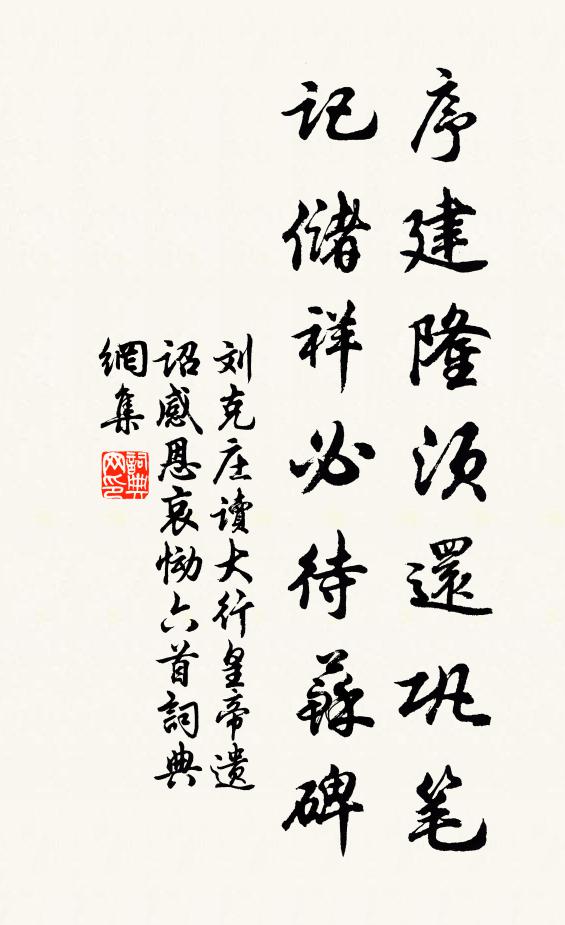 序建隆須還巩笔
記儲祥必待蘇碑
刘克庄讀大行皇帝遺
詔感恩哀慟六首詞典
網集
詞典
网印